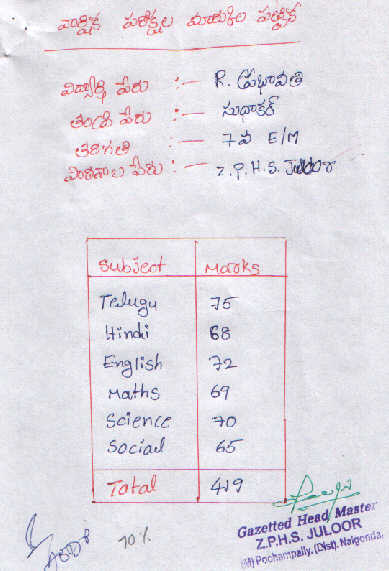 వార్షిక పరీక్షల మార్కుల పట్టిక
విద్యార్థి పేరు :- R. ప్రభావతి
తండ్రి పేరు :- సుధాకర్
తరగతి :- 7వ E/M
పాఠశాల పేరు :- Z.P.H.S. Juloor
Subject Marks
Telugu 75
Hindi 68
English 72
Maths 69
Science 70
Social 65
Total 419
70%
Gazetted Head Master
Z.P.H.S. JULOOR
(M) Pochampally, (Dist). Nalgonda.